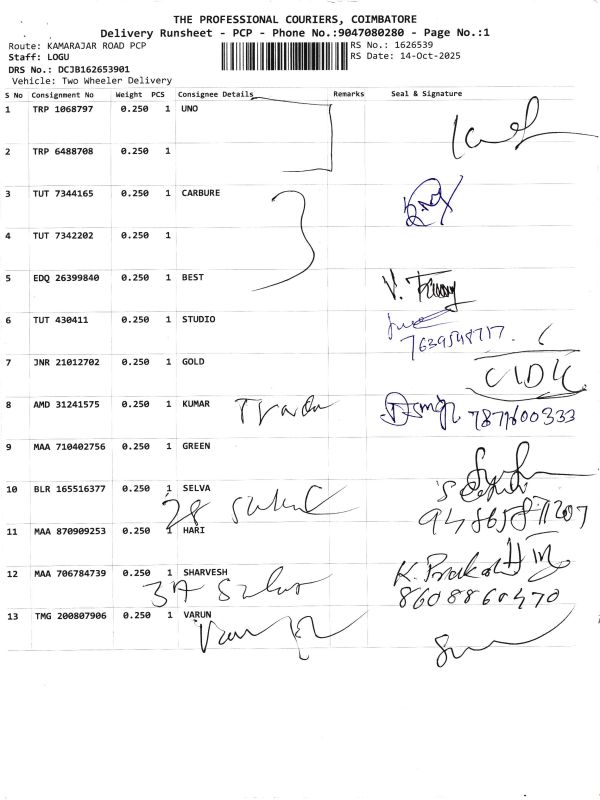 THE PROFESSIONAL COURIERS, COIMBATORE
Delivery Runsheet - PCP - Phone No.:9047080280 - Page No.:1
Route: KAMARAJAR ROAD PCP RS No.: 1626539
Staff: LOGU RS Date: 14-Oct-2025
DRS No.: DCJB162653901
Vehicle: Two Wheeler Delivery
S No Consignment No Weight PCS Consignee Details Remarks Seal & Signature
1 TRP 1068797 0.250 1 UNO
2 TRP 6488708 0.250 1
3 TUT 7344165 0.250 1 CARBURE
4 TUT 7342202 0.250 1
5 EDQ 26399840 0.250 1 BEST
6 TUT 430411 0.250 1 STUDIO
7639548717.
7 JNR 21012702 0.250 1 GOLD
8 AMD 31241575 0.250 1 KUMAR
9 MAA 710402756 0.250 1 GREEN
10 BLR 165516377 0.250 1 SELVA
28
11 MAA 870909253 0.250 1 HARI
12 MAA 706784739 0.250 1 SHARVESH K. Prakash
37 8608860470
13 TMG 200807906 0.250 1 VARUN